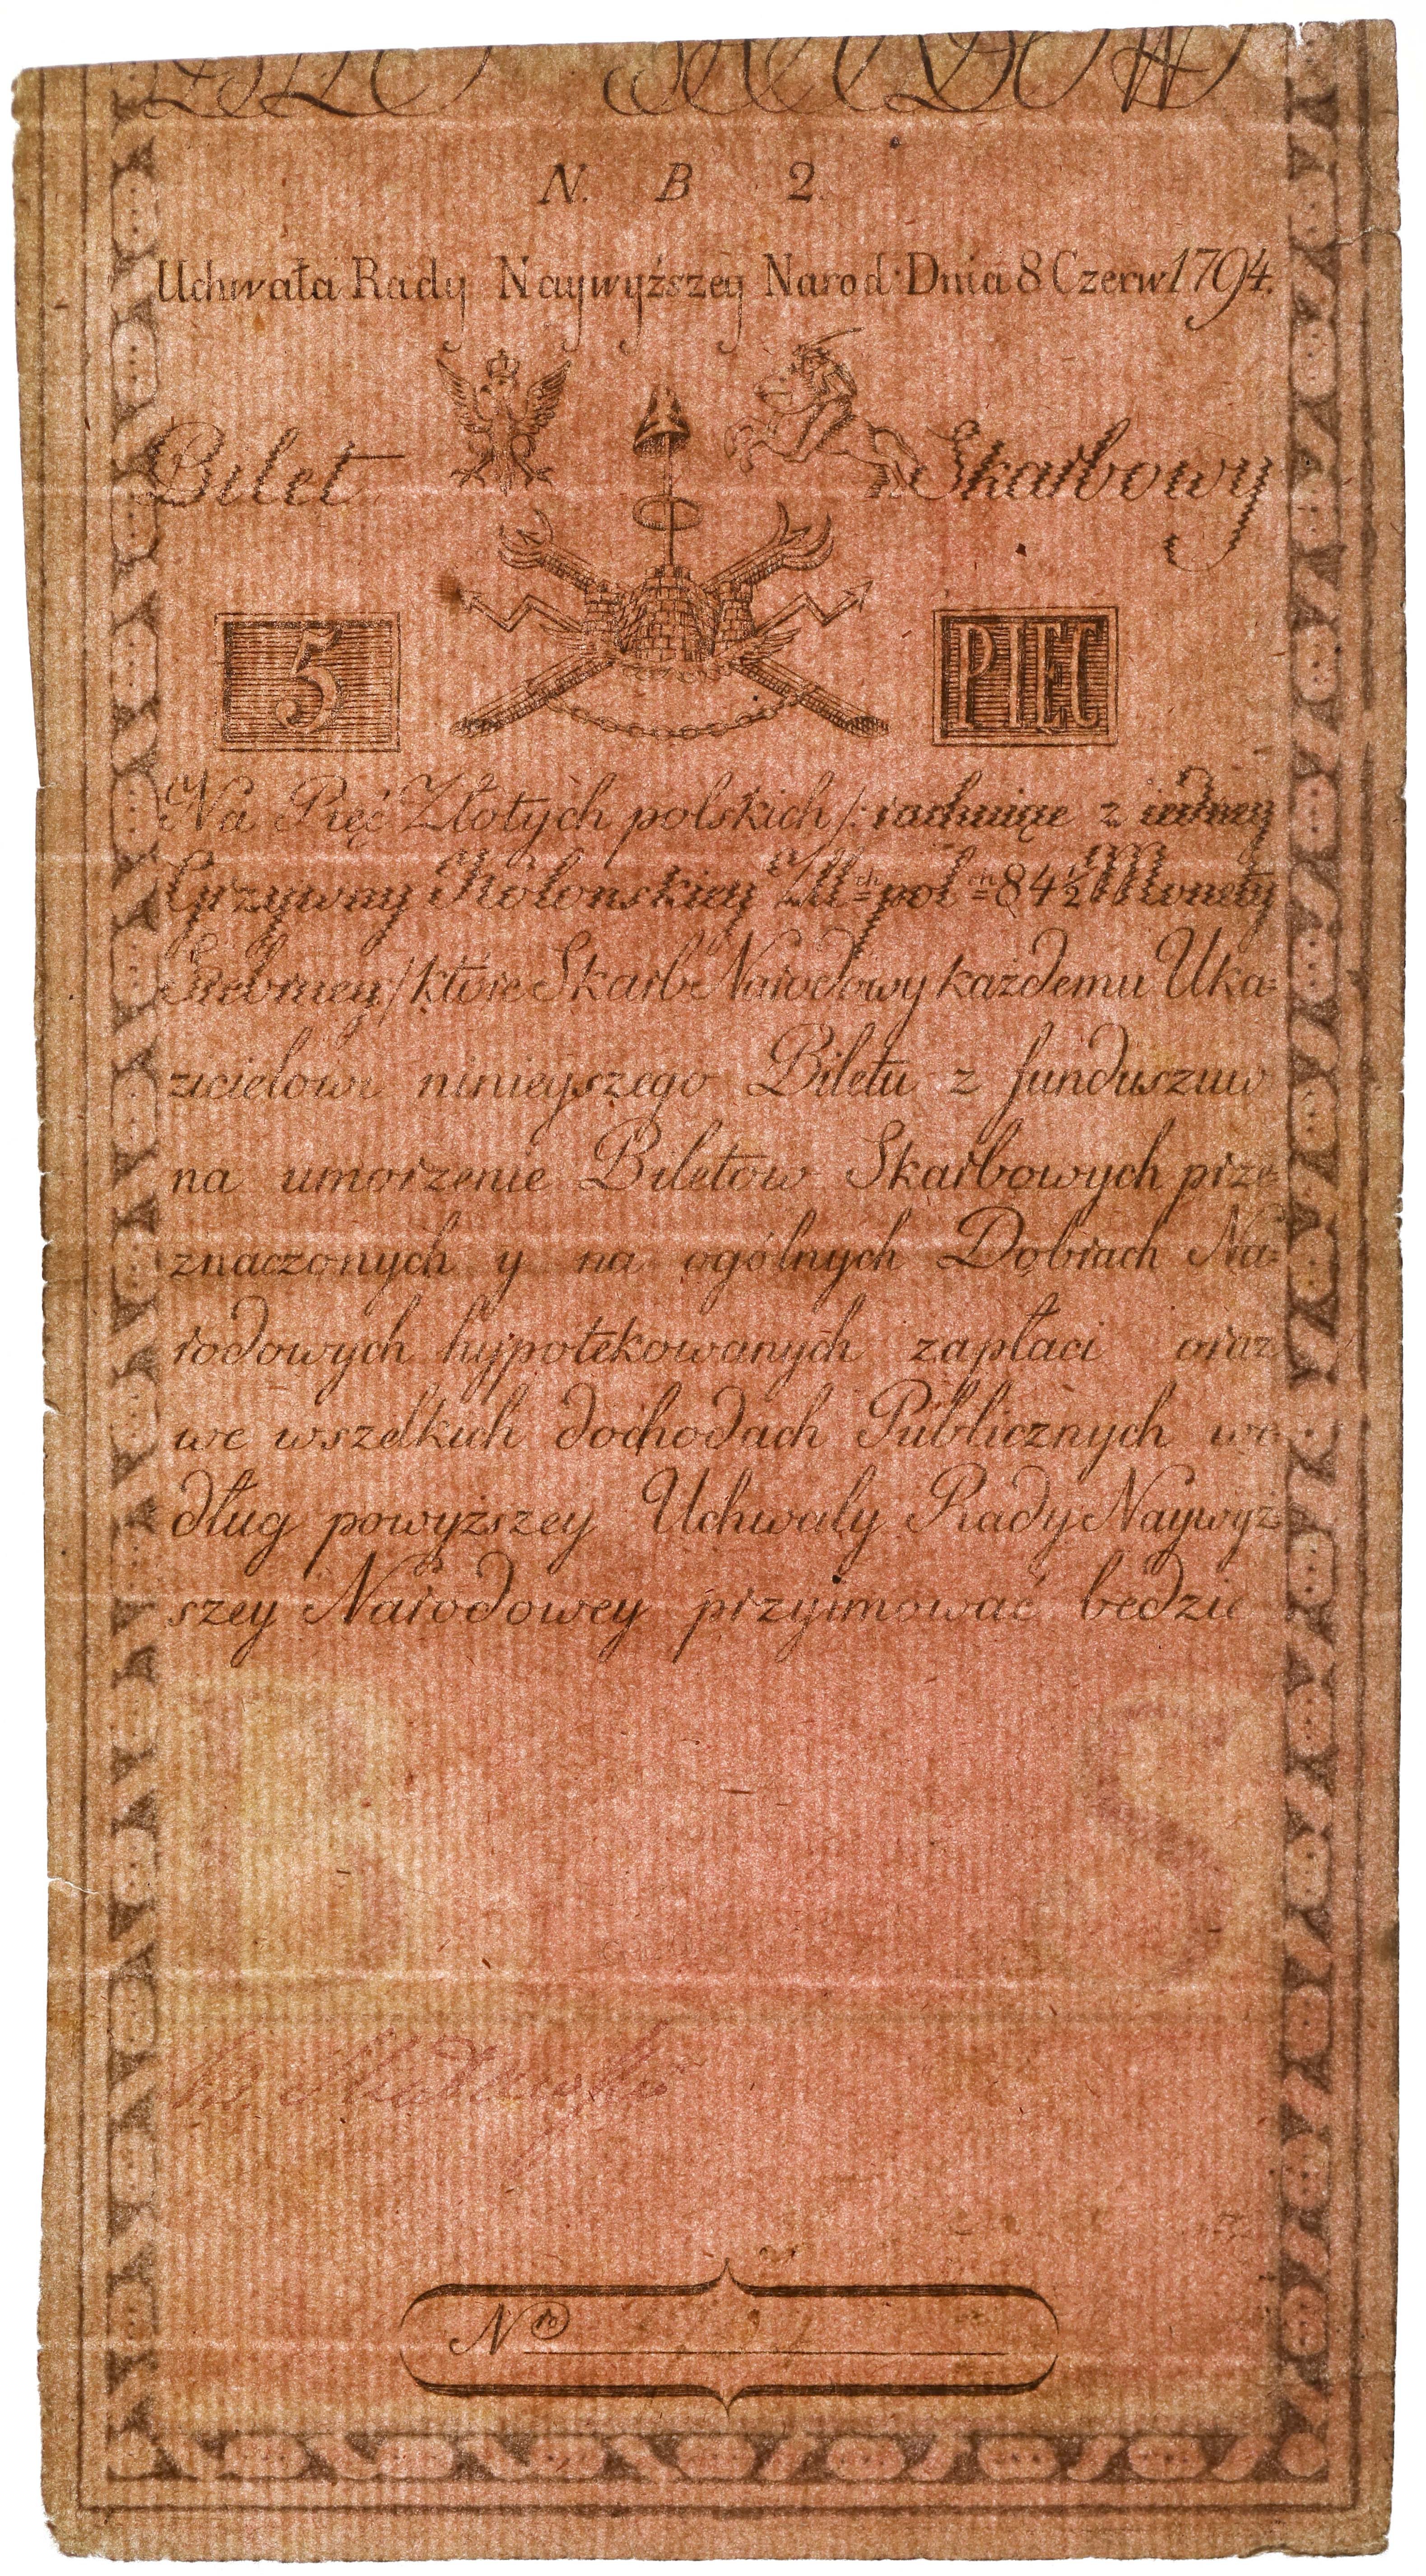 N. B 2.
Uchwała Rady Naywyższey Narod: Dnia 8 Czerw 1794.
Bilet Skarbowy
5 PIĘC
Na Pięć Złotych polskich /: rachuiąc z iedney
Grzywny Kolonskiey Zll ch pol ch 84 1/2 Monety
Srebrney / które Skarb Narodowy każdemu Uka=
zicielowi ninieyszego Biletu z funduszuw
na umorzenie Biletow Skarbowych prze=
znaczonych y na ogólnych Dobrach Na=
rodowych hypotekowanych zapłaci oraz
we wszelkich dochodach Publicznych we=
dług powyższey Uchwały Rady Naywyż=
szey Narodowey przyimować będzie
R S
Nro